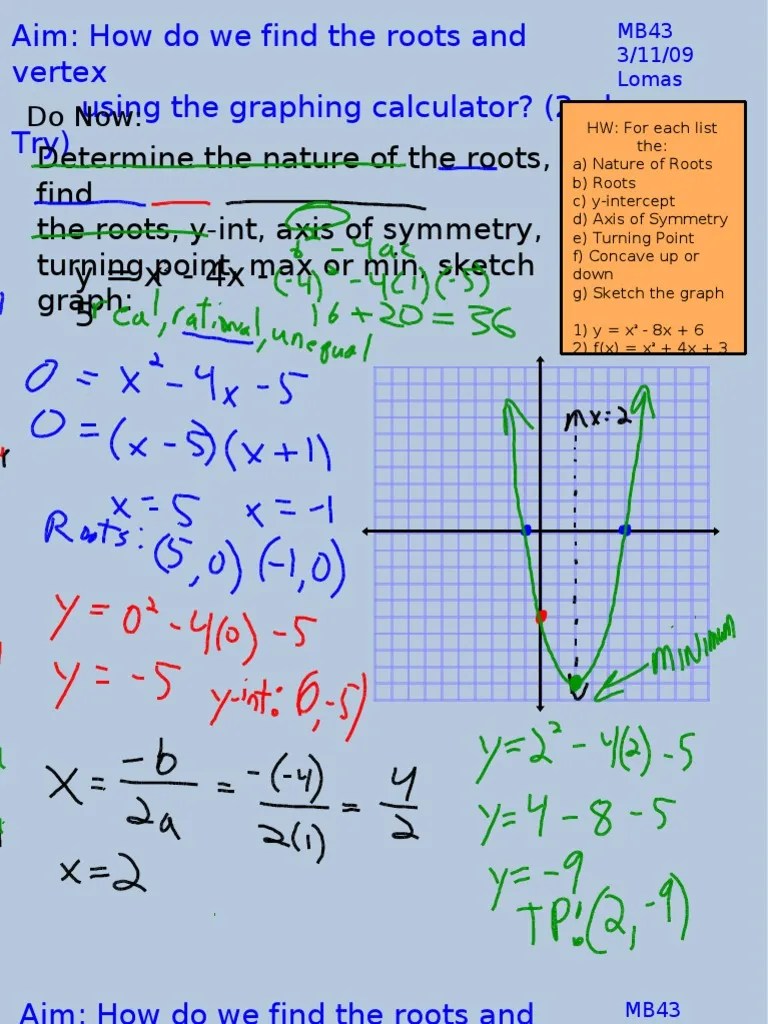 Aim: How do we find the roots and
vertex
using the graphing calculator? (2nd
Try)
MB43
3/11/09
Lomas
Do Now:
Determine the nature of the roots,
find
the roots, y-int, axis of symmetry,
turning point, max or min, sketch
graph:
y = x² - 4x -
5
b² - 4ac
(-4)² - 4(1)(-5)
16 + 20 = 36
real, rational, unequal
HW: For each list
the:
a) Nature of Roots
b) Roots
c) y-intercept
d) Axis of Symmetry
e) Turning Point
f) Concave up or
down
g) Sketch the graph
1) y = x² - 8x + 6
2) f(x) = x² + 4x + 3
0 = x² - 4x - 5
0 = (x - 5)(x + 1)
x = 5 x = -1
Roots: (5,0) (-1,0)
y = 0² - 4(0) - 5
y = -5 y-int: (0,-5)
x = -b/2a = -(-4)/2(1) = 4/2
x = 2
x=2
MINIMUM
y = 2² - 4(2) - 5
y = 4 - 8 - 5
y = -9
TP: (2, -9)
Aim: How do we find the roots and
MB43